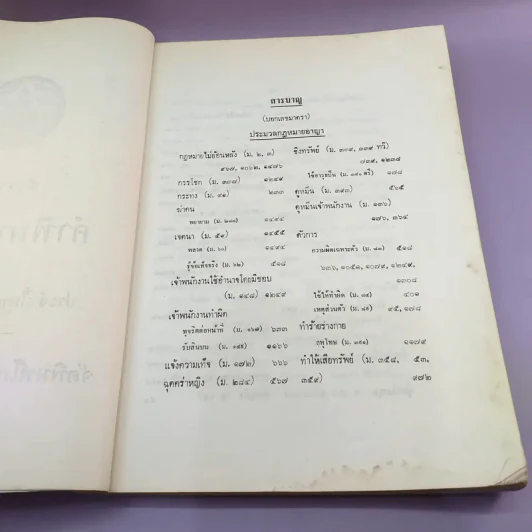 สารบาญ
(บอกเลขมาตรา)
ประมวลกฎหมายอาญา
กฎหมายไม่ย้อนหลัง (ม. ๒, ๓)
๙๖๗, ๑๐๖๒, ๑๔๗๖
กรรโชก (ม. ๓๓๗) ๑๒๔๙
กระทง (ม. ๙๑) ๒๓๓
ฆ่าคน
พยายาม (ม. ๒๘๘) ๑๔๙๔
เจตนา (ม. ๕๙) ๑๔๕๕
พลาด (ม. ๖๐) ๑๔๙๔
รู้ข้อเท็จจริง (ม. ๖๒) ๕๑๘
เจ้าพนักงานใช้อำนาจโดยมิชอบ
(ม. ๑๔๘) ๑๒๔๙
เจ้าพนักงานทำผิด
ทุจริตต่อหน้าที่ (ม. ๑๕๗) ๖๓๓
รับสินบน (ม. ๑๔๙) ๑๑๖๖
แจ้งความเท็จ (ม. ๑๗๒) ๖๖๖
ฉุดคร่าหญิง (ม. ๒๘๔) ๕๖๗
ชิงทรัพย์ (ม. ๓๓๙, ๓๓๙ ทวิ)
๘๓๙, ๑๒๓๘
ใช้อาวุธปืน ๑๗๘
ดูหมิ่น (ม. ๓๙๓) ๕๖๕
ดูหมิ่นเจ้าพนักงาน (ม. ๑๓๖)
๑๗๖, ๓๖๔
ตัวการ
ความผิดเฉพาะตัว (ม. ๘๓) ๕๑๘
๖๓๖, ๑๐๕๑, ๑๐๗๙, ๑๒๔๙,
๑๓๐๘
ใช้ให้ทำผิด (ม. ๘๔) ๔๐๑
เหตุส่วนตัว (ม. ๘๙) ๙๕, ๑๗๘
ทำร้ายร่างกาย
ลหุโทษ (ม. ๓๙๑) ๑๑๗๙
ทำให้เสียทรัพย์ (ม. ๓๕๘, ๕๓,
๓๕๙) ๙๗๒